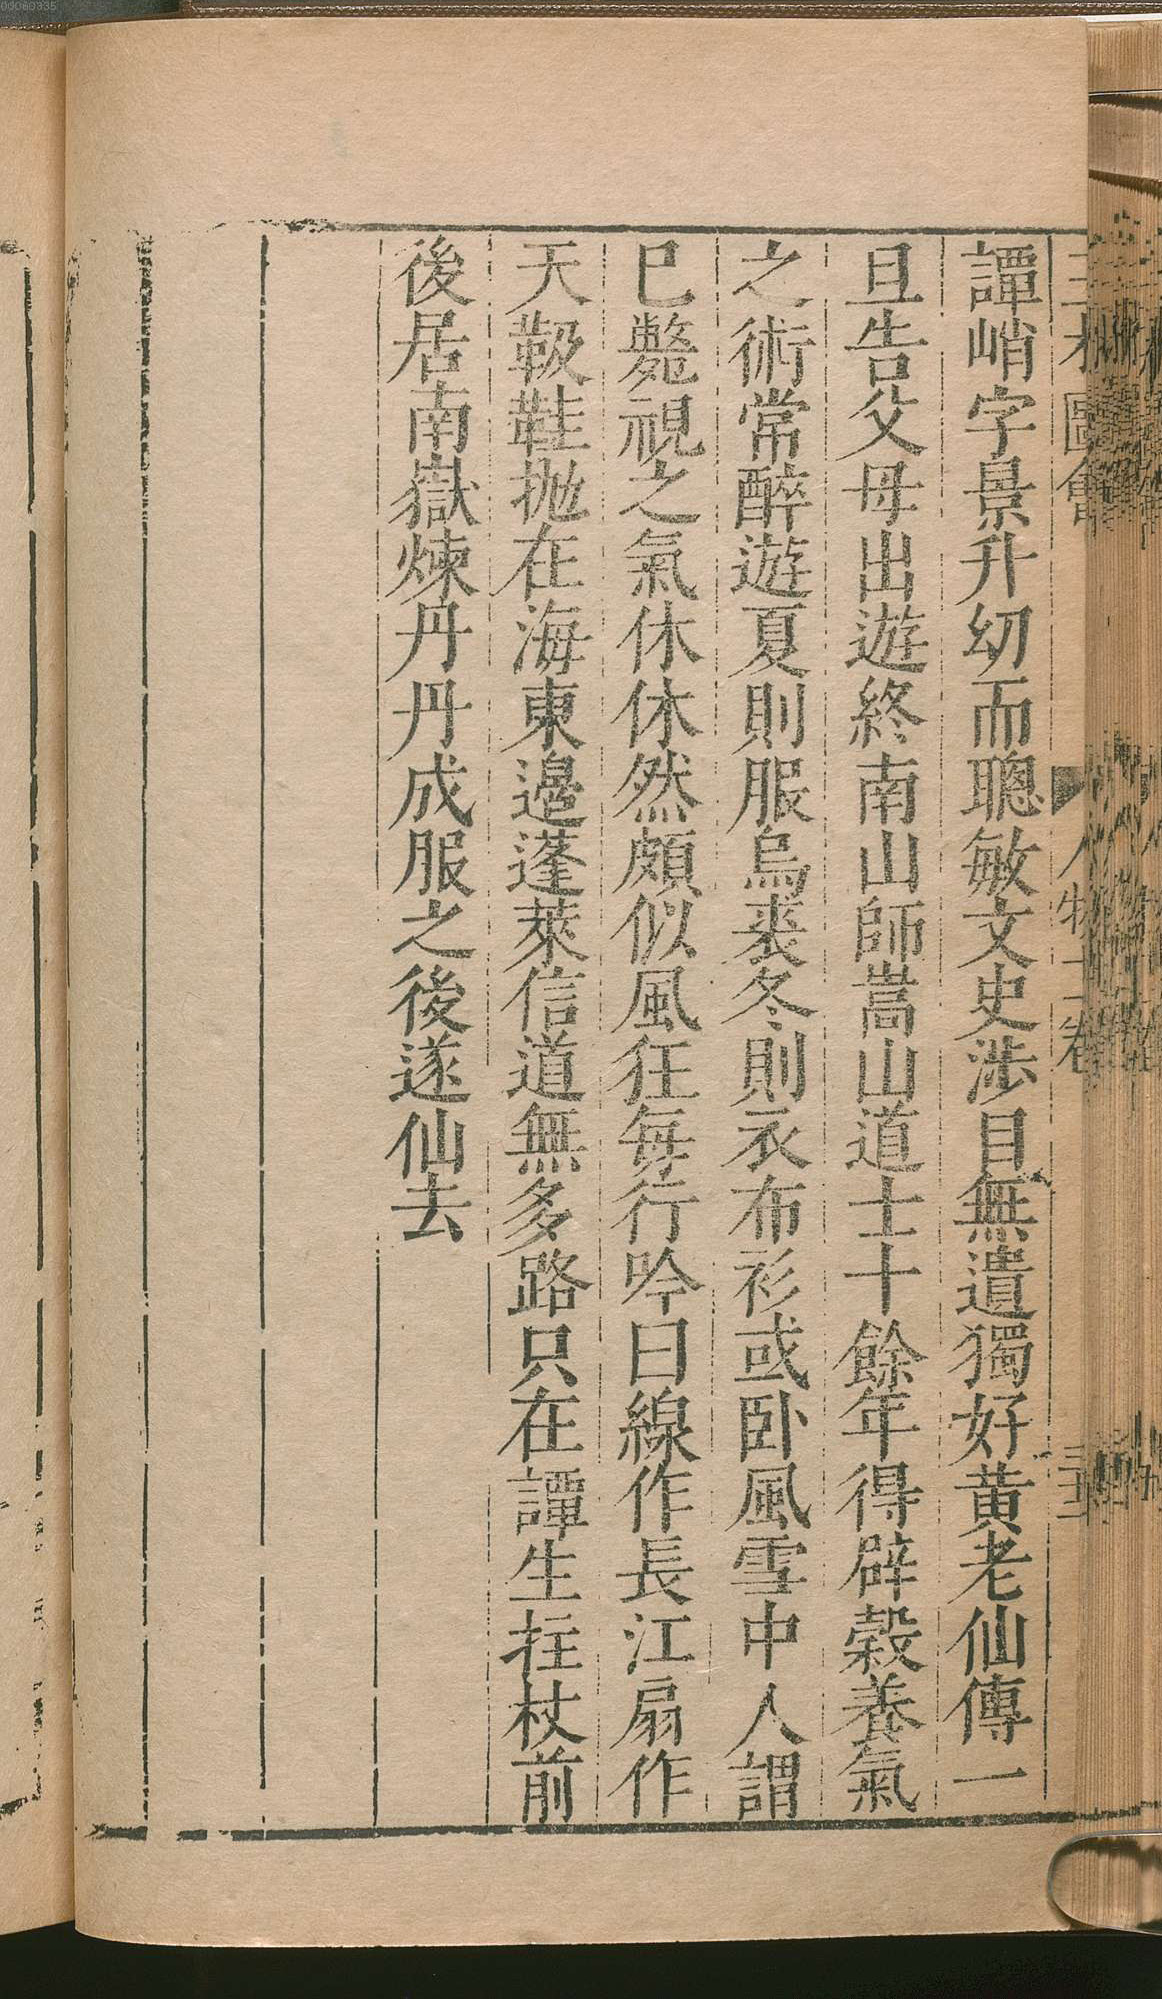 譚峭字景升幼而聰敏文史涉目無遺獨好黄老仙傳一
旦告父母出遊終南山師嵩山道士十餘年得辟穀養氣
之術常醉遊夏則服烏裘冬則衣布衫或卧風雪中人謂
已斃視之氣休休然頗似風狂每行吟曰線作長江扇作
天靸鞋抛在海東邊蓬萊信道無多路只在譚生拄杖前
後居南嶽煉丹丹成服之後遂仙去
00060335